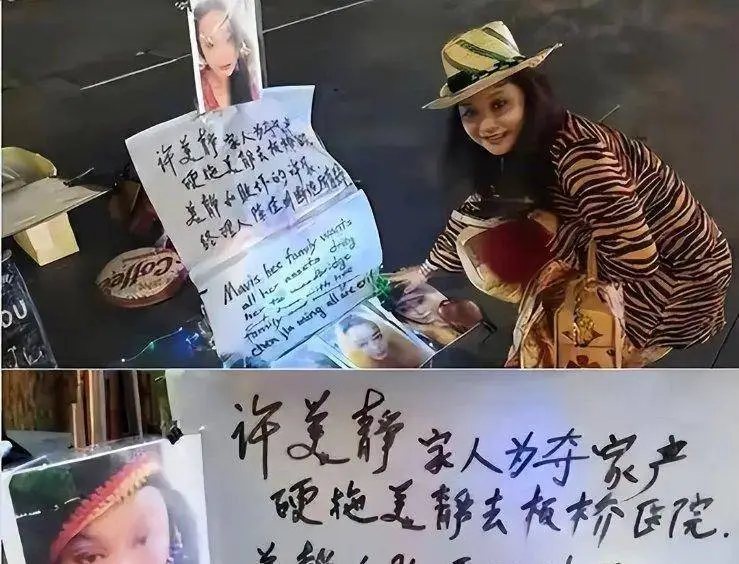 许美静家人为夺家产
硬拖美静去板桥医院
美静和
经理人陈佳明断绝
Mavis hee family wants
all her assets drag
her to woodbridge
family with
chen jia ming all are evil
Coffee
OU
许美静家人为夺家产
硬拖美静去板桥医院.
美静